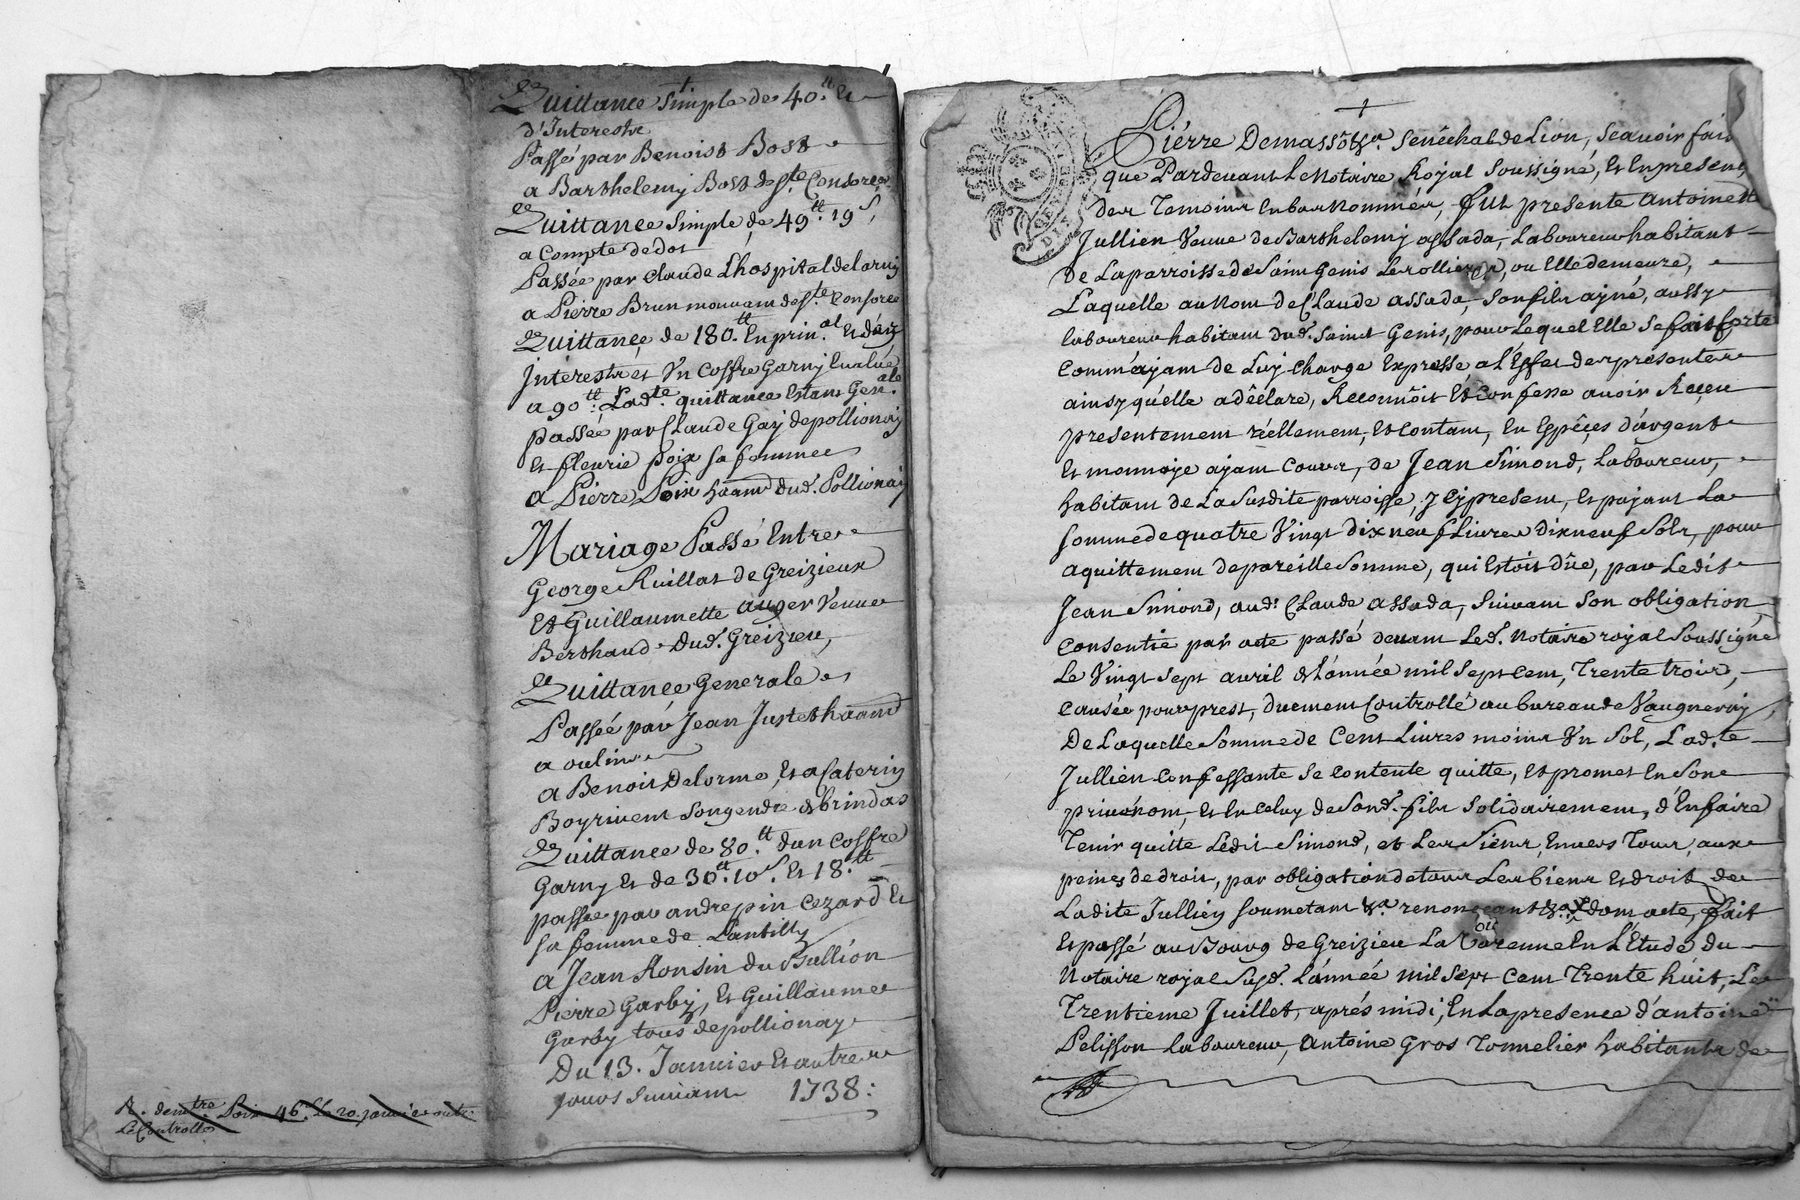 Quittance simple de 40.tt Et
d'Interestz
Passé par Benoist Bost
a Barthelemy Bost de ste. Consorce.
Quittance simple de 49.tt 19s,
a Compte de dot
Passée par Claude Lhospital de larny
a Pierre Brun mouvant de ste. Consorce
Quittance de 180.tt En prin.al Et
Interestz et Vn Coffre Garny Evalué
a 90.tt; Lad.te quittance Estant Gen.ale
passée par Claude Gay de pollionay
Et fleurie poix sa femme
a Pierre Poix haant dud. Pollionay
Mariage Passé Entre
George Ruillat de Greizieux
Et Guillaumette auger Veuve
Berthaud dud. Greizieu,
Quittance Generale
Passée par Jean Juste haant
a oulin
a Benoit Delorme, Et a Caterin
Boyrivent son gendre de brindas
Quittance de 80.tt d'un Coffre
Garny Et de 30tt. 10s. Et 18.tt
passée par andre pin Cezard Et
sa femme de Lantilly
a Jean Ronsin du Bullion
Pierre Garby, Et Guillaume
Garby tous de pollionay
Du 13. Janvier Et autres
jours Suivant 1738:
A. Le 20. janvier
Le Controlle
GENER
DE LION
Pierre Demasso &a. Senéchal de Lion, scavoir fait
que Pardevant Le Notaire Royal Soussigné, Et En presence
des Temoins En bas Nommés, fut presente Antoinette
Jullien Veuve de Barthelemy assada, Laboureur habitant
de La parroisse de Saint Genis Les ollieres, ou Elle demeure,
Laquelle au Nom de Claude assada, son fils ayné, aussy
laboureur habitant dud. Saint Genis, pour Lequel Elle se fait forte
Comm'ayant de Luy charge Expresse a l'Effet des presentes
ainsy qu'elle a déclaré, Reconnoit Et Confesse avoir Receu
presentement réellement, Et contant, En Espêces d'argent
Et monnoye ayant Cours, de Jean Simond, Laboureur,
habitant de La Susdite parroisse, y cy present, Et payant La
somme de quatre Vingt dix neuf Livres dix neuf Sols, pour
aquittement de pareille Somme, qui Estoit dûe, par Ledit
Jean Simond, aud. Claude assada, Suivant Son obligation
Consentie par acte passé devant Led. Notaire royal Soussigné
Le Vingt Sept avril de L'année mil Sept cent, Trente trois,
Causée pour prest, duement Controllé au bureau de Vaugneray,
De Laquelle Somme de Cent Livres moins Vn Sol, Lad.te
Jullien Confessante Se Contente quitte, Et promet En Son
privé nom, Et En Celuy de Sond. fils Solidairement, d'En faire
Tenir quitte Ledit Simond, et Les Siens, Envers Tous, aux
peines de droit, par obligation de tous Les biens Et droit de
Ladite Jullien Soumetant &a. renonceant &a. dont acte, fait
Et passé au Bourg de Greizieu La Varenne En L'Etude du
ou
Notaire royal Susd. L'année mil Sept Cent Trente huit, Le
Trentieme Juillet, aprés midi, En La presence d'antoine
Pelisson Laboureur, Antoine Gros Tonnelier habitants de